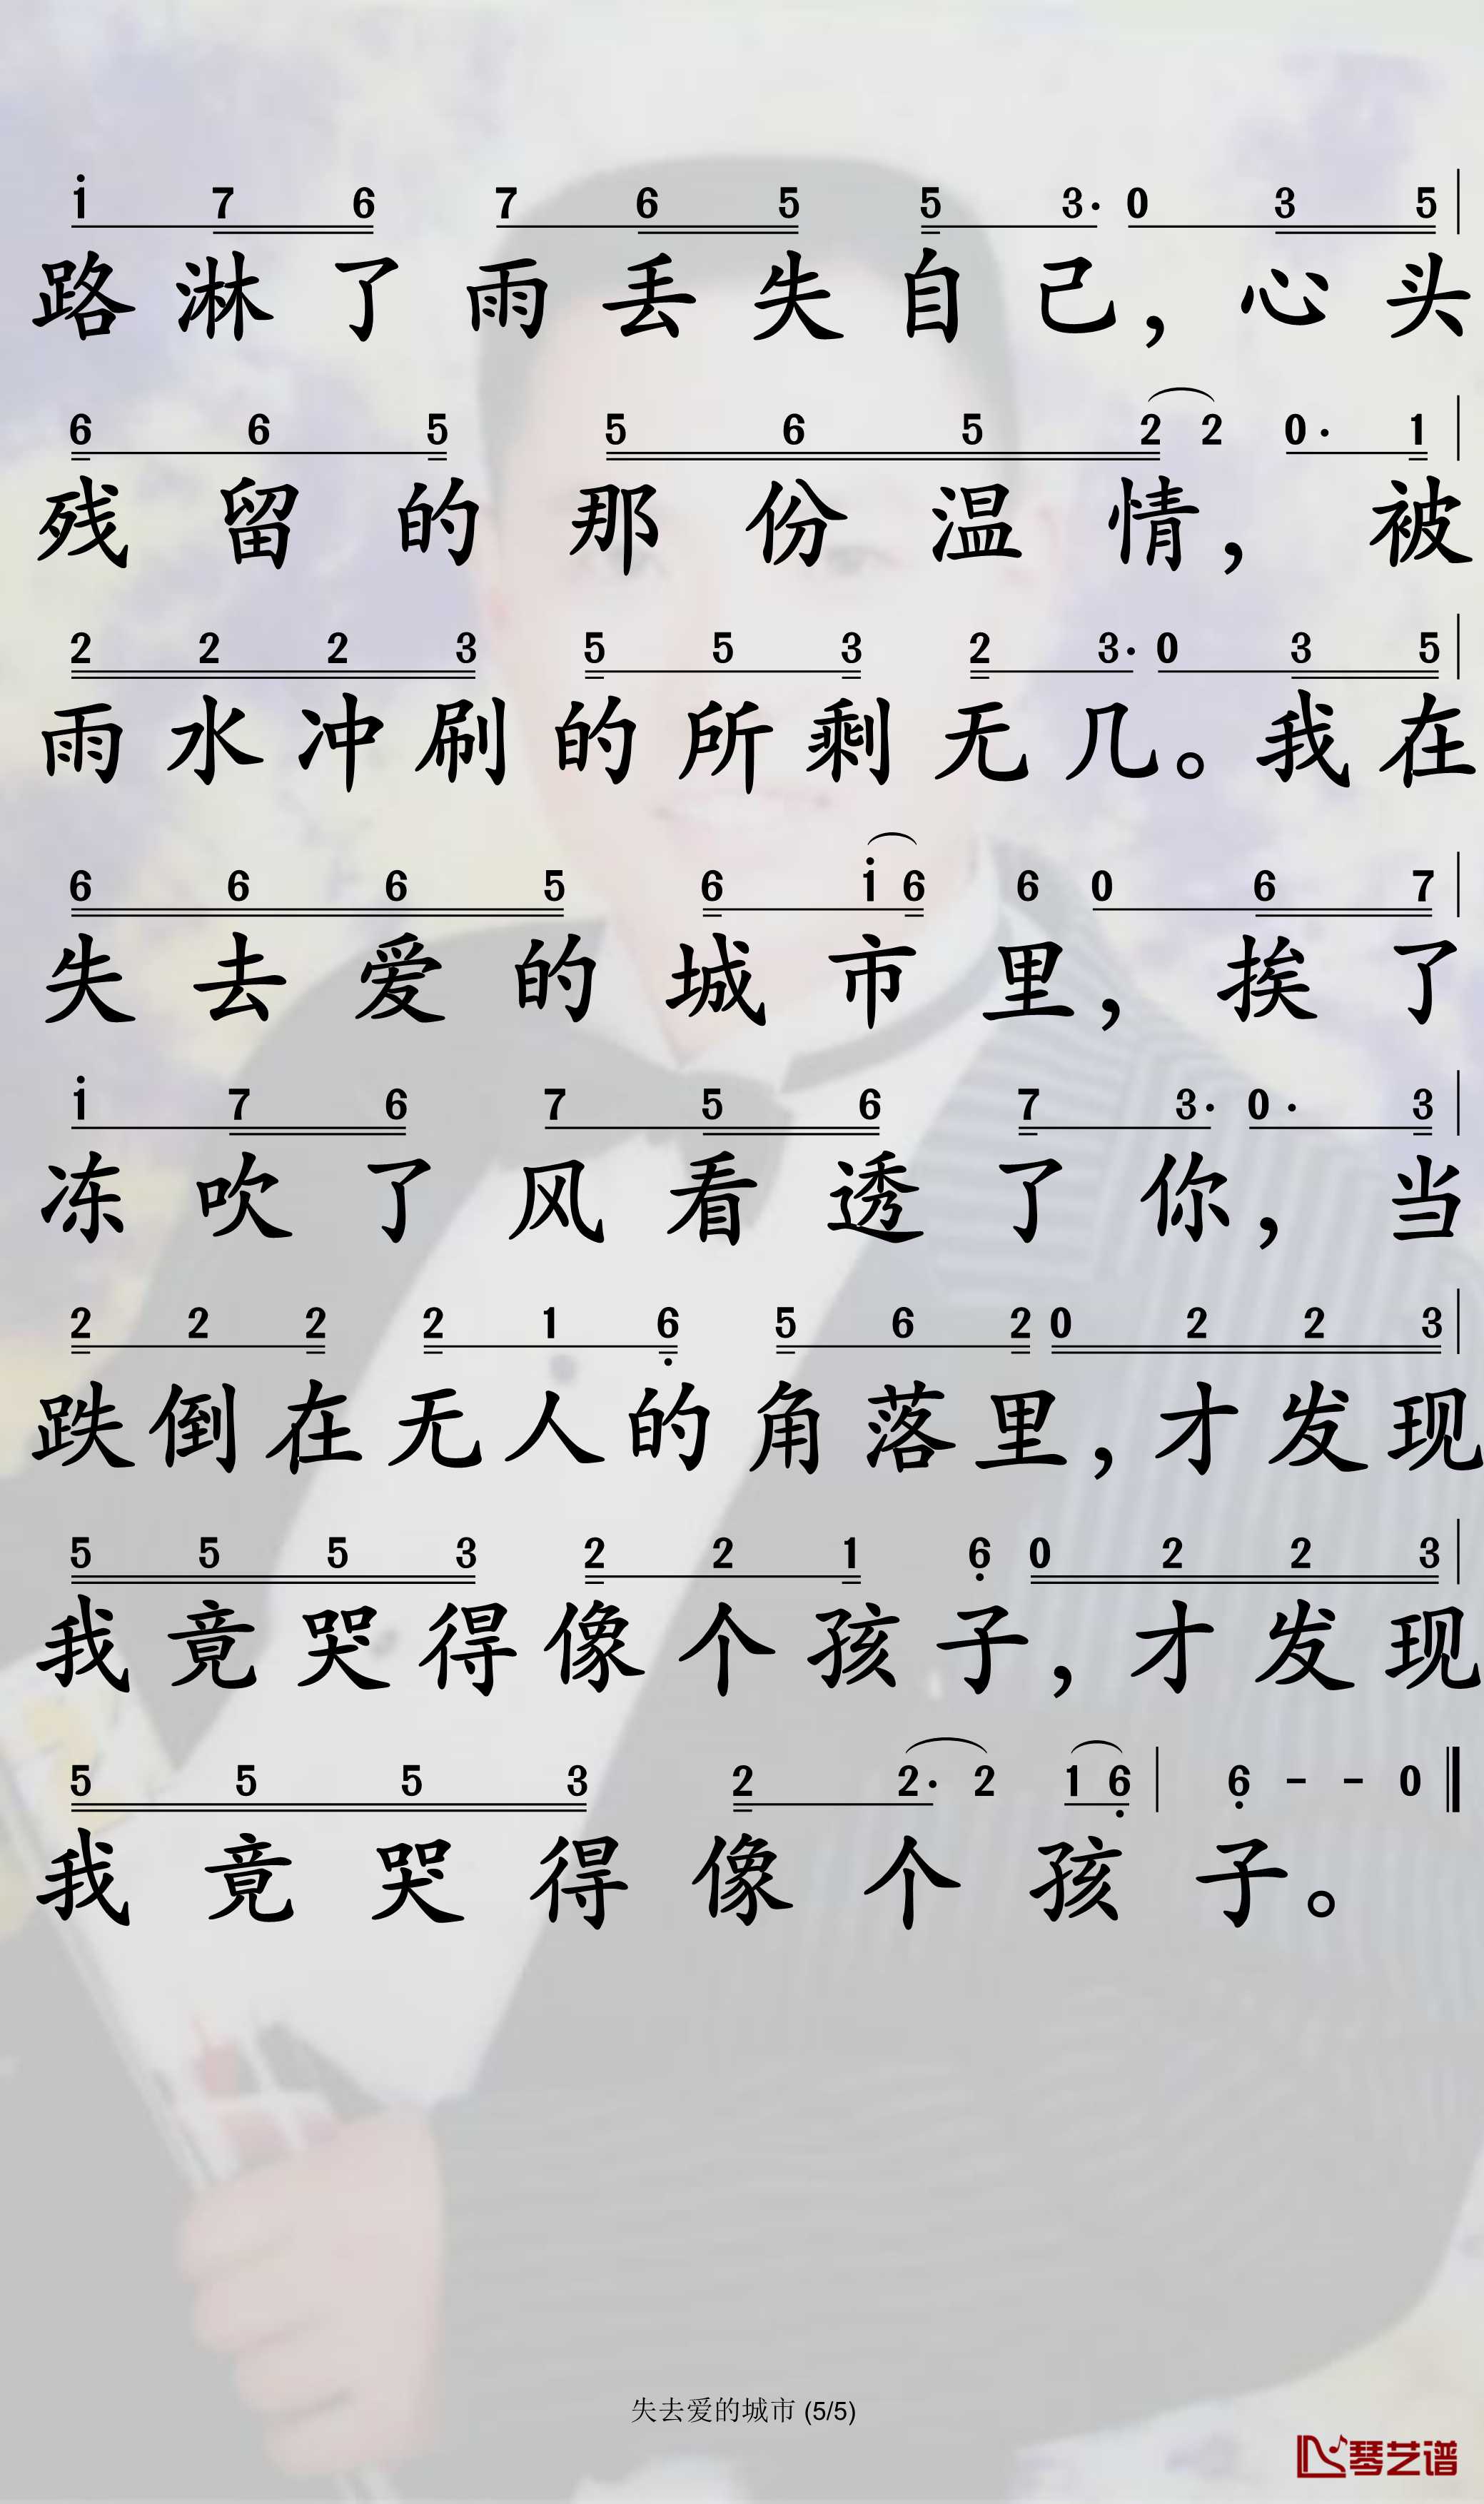 i 7 6 7 6 5 5 3· 0 3 5
路淋了雨丢失自己，心头
6 6 5 5 6 5 2 2 0· 1
残留的那份温情，被
2 2 2 3 5 5 3 2 3· 0 3 5
雨水冲刷的所剩无几。我在
6 6 6 5 6 i 6 6 0 6 7
失去爱的城市里，挨了
i 7 6 7 5 6 7 3· 0· 3
冻吹了风看透了你，当
2 2 2 2 1 6 5 6 2 0 2 2 3
跌倒在无人的角落里，才发现
5 5 5 3 2 2 1 6 0 2 2 3
我竟哭得像个孩子，才发现
5 5 5 3 2 2· 2 1 6 | 6 - - 0
我竟哭得像个孩子。
失去爱的城市 (5/5)
琴艺谱